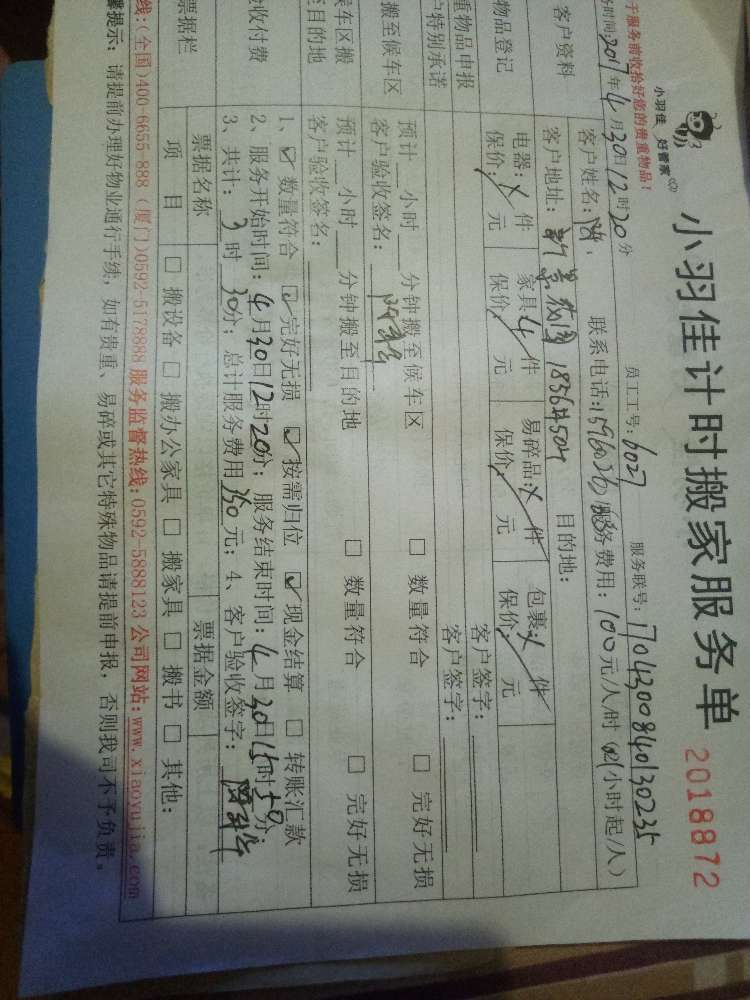 小羽佳 好管家
小羽佳计时搬家服务单
2018872
于服务前收拾好您的贵重物品!
时间:2017年4月30日12时20分
员工工号:6027
服务联号:17043008401 30235
客户资料
客户姓名:
联系电话:
服务费用:100元/人/时 (2小时起/人)
客户地址:
18564504
目的地:
物品登记
电器: 件 家具4件 易碎品: 件 包裹: 件
保价: 元 保价: 元 保价: 元 保价: 元
重物品申报
客户签字:
户特别承诺
客户签字:
搬至候车区
预计__小时__分钟搬至候车区 □ 数量符合 □ 完好无损
客户验收签名:
候车区搬至目的地
预计__小时__分钟搬至目的地 □ 数量符合 □ 完好无损
客户验收签名:
验收付费
1、☑ 数量符合 ☑ 完好无损 ☑ 按需归位 ☑ 现金结算 □ 转账汇款
2、服务开始时间:4月30日12时20分;服务结束时间:4月30日15时50分
3、共计:3时30分;总计服务费用350元;4、客户验收签字:
票据栏
票据名称 票据金额
项目 □ 搬设备 □ 搬办公家具 □ 搬家具 □ 搬书 □ 其他:
线:(全国)400-6655-888 (厦门)0592-5178888 服务监督热线:0592-5888123 公司网站:www.xiaoyujia.com
提示:请提前办理好物业通行手续,如有贵重、易碎或其它特殊物品请提前申报,否则我司不予负责。